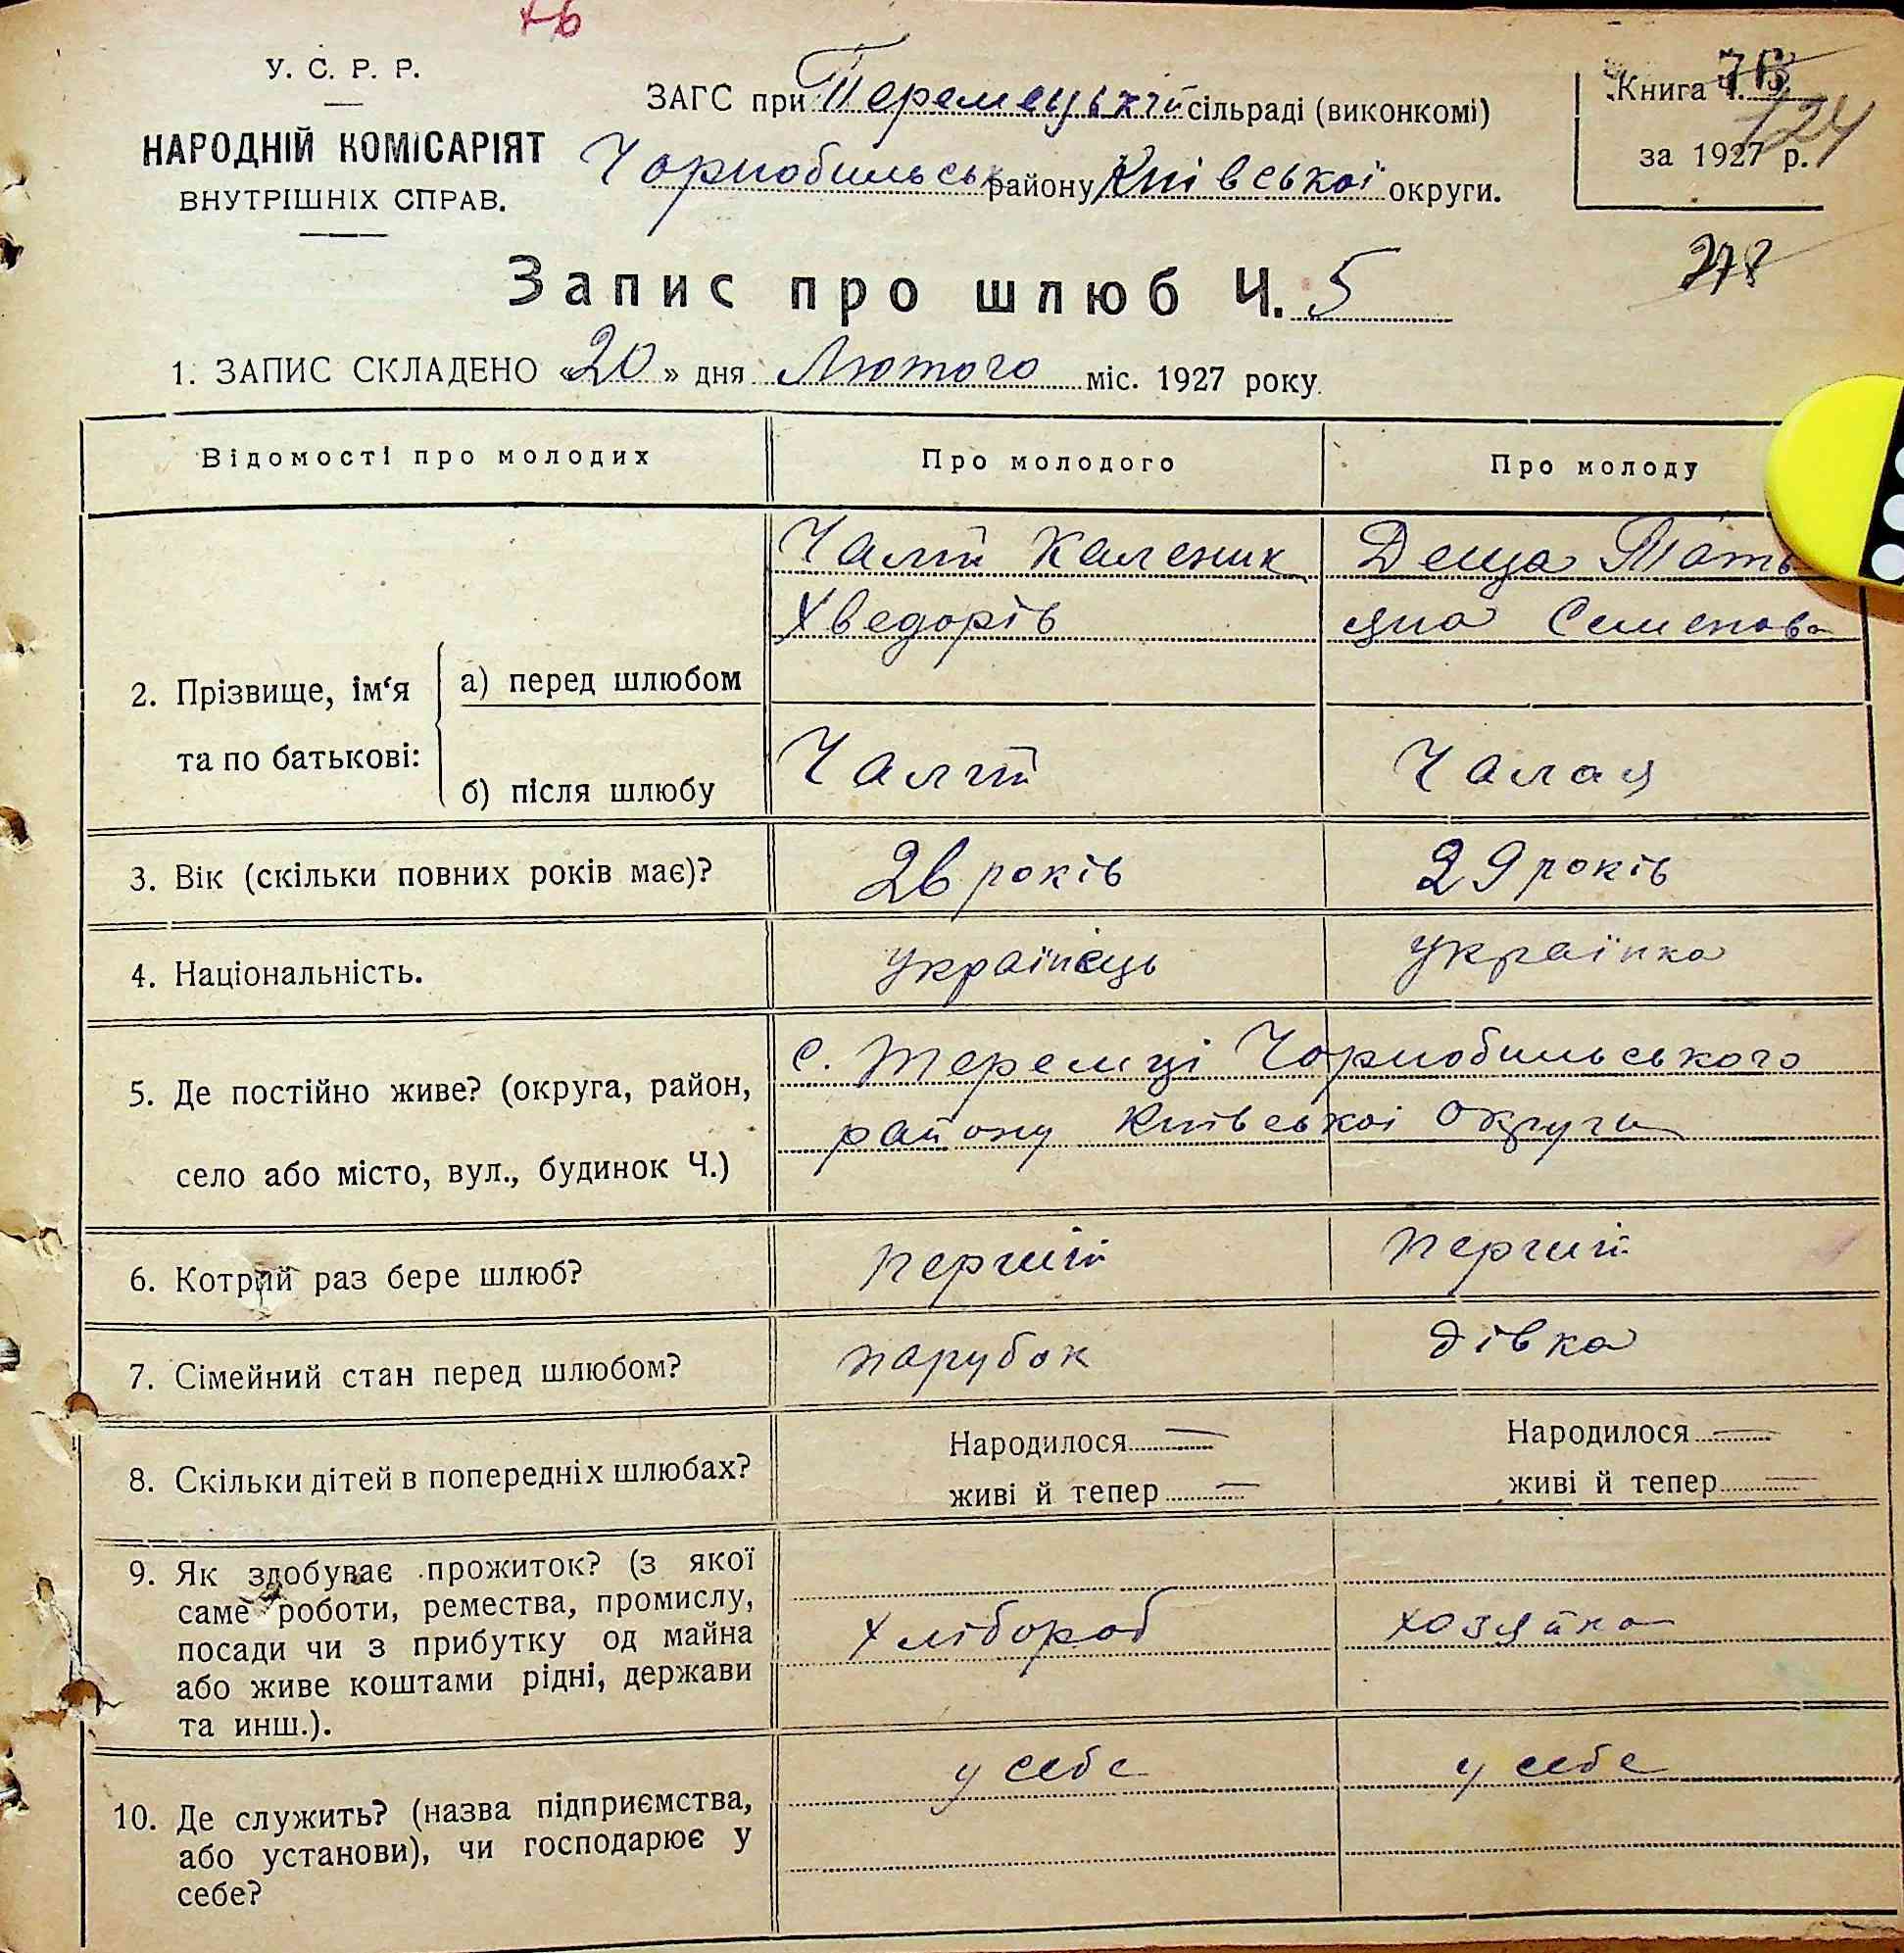 У. С. Р. Р.
НАРОДНІЙ КОМІСАРІЯТ
ВНУТРІШНІХ СПРАВ.
ЗАГС при Теремецькій сільраді (виконкомі)
Чорнобильськ району Київської округи.
Книга Ч. 76
124
за 1927 р.
Запис про шлюб Ч. 5
1. ЗАПИС СКЛАДЕНО «20» дня Лютого міс. 1927 року.
Відомості про молодих
Про молодого
Про молоду
2. Прізвище, ім‘я
та по батькові:
а) перед шлюбом
Чалий Каленик
Хведорів
Деща Тать
яна Семенова
б) після шлюбу
Чалий
Чалая
3. Вік (скільки повних років має)?
26 років
29 років
4. Національність.
Українець
Українка
5. Де постійно живе? (округа, район,
село або місто, вул., будинок Ч.)
с. Теремці Чорнобильського
району Київської Округи
6. Котрий раз бере шлюб?
перший
перший
7. Сімейний стан перед шлюбом?
парубок
дівка
8. Скільки дітей в попередніх шлюбах?
Народилося —
живі й тепер —
Народилося —
живі й тепер —
9. Як здобуває прожиток? (з якої
саме роботи, ремества, промислу,
посади чи з прибутку од майна
або живе коштами рідні, держави
та инш.).
Хлібороб
хозяйка
10. Де служить? (назва підприємства,
або установи), чи господарює у
себе?
у себе
у себе